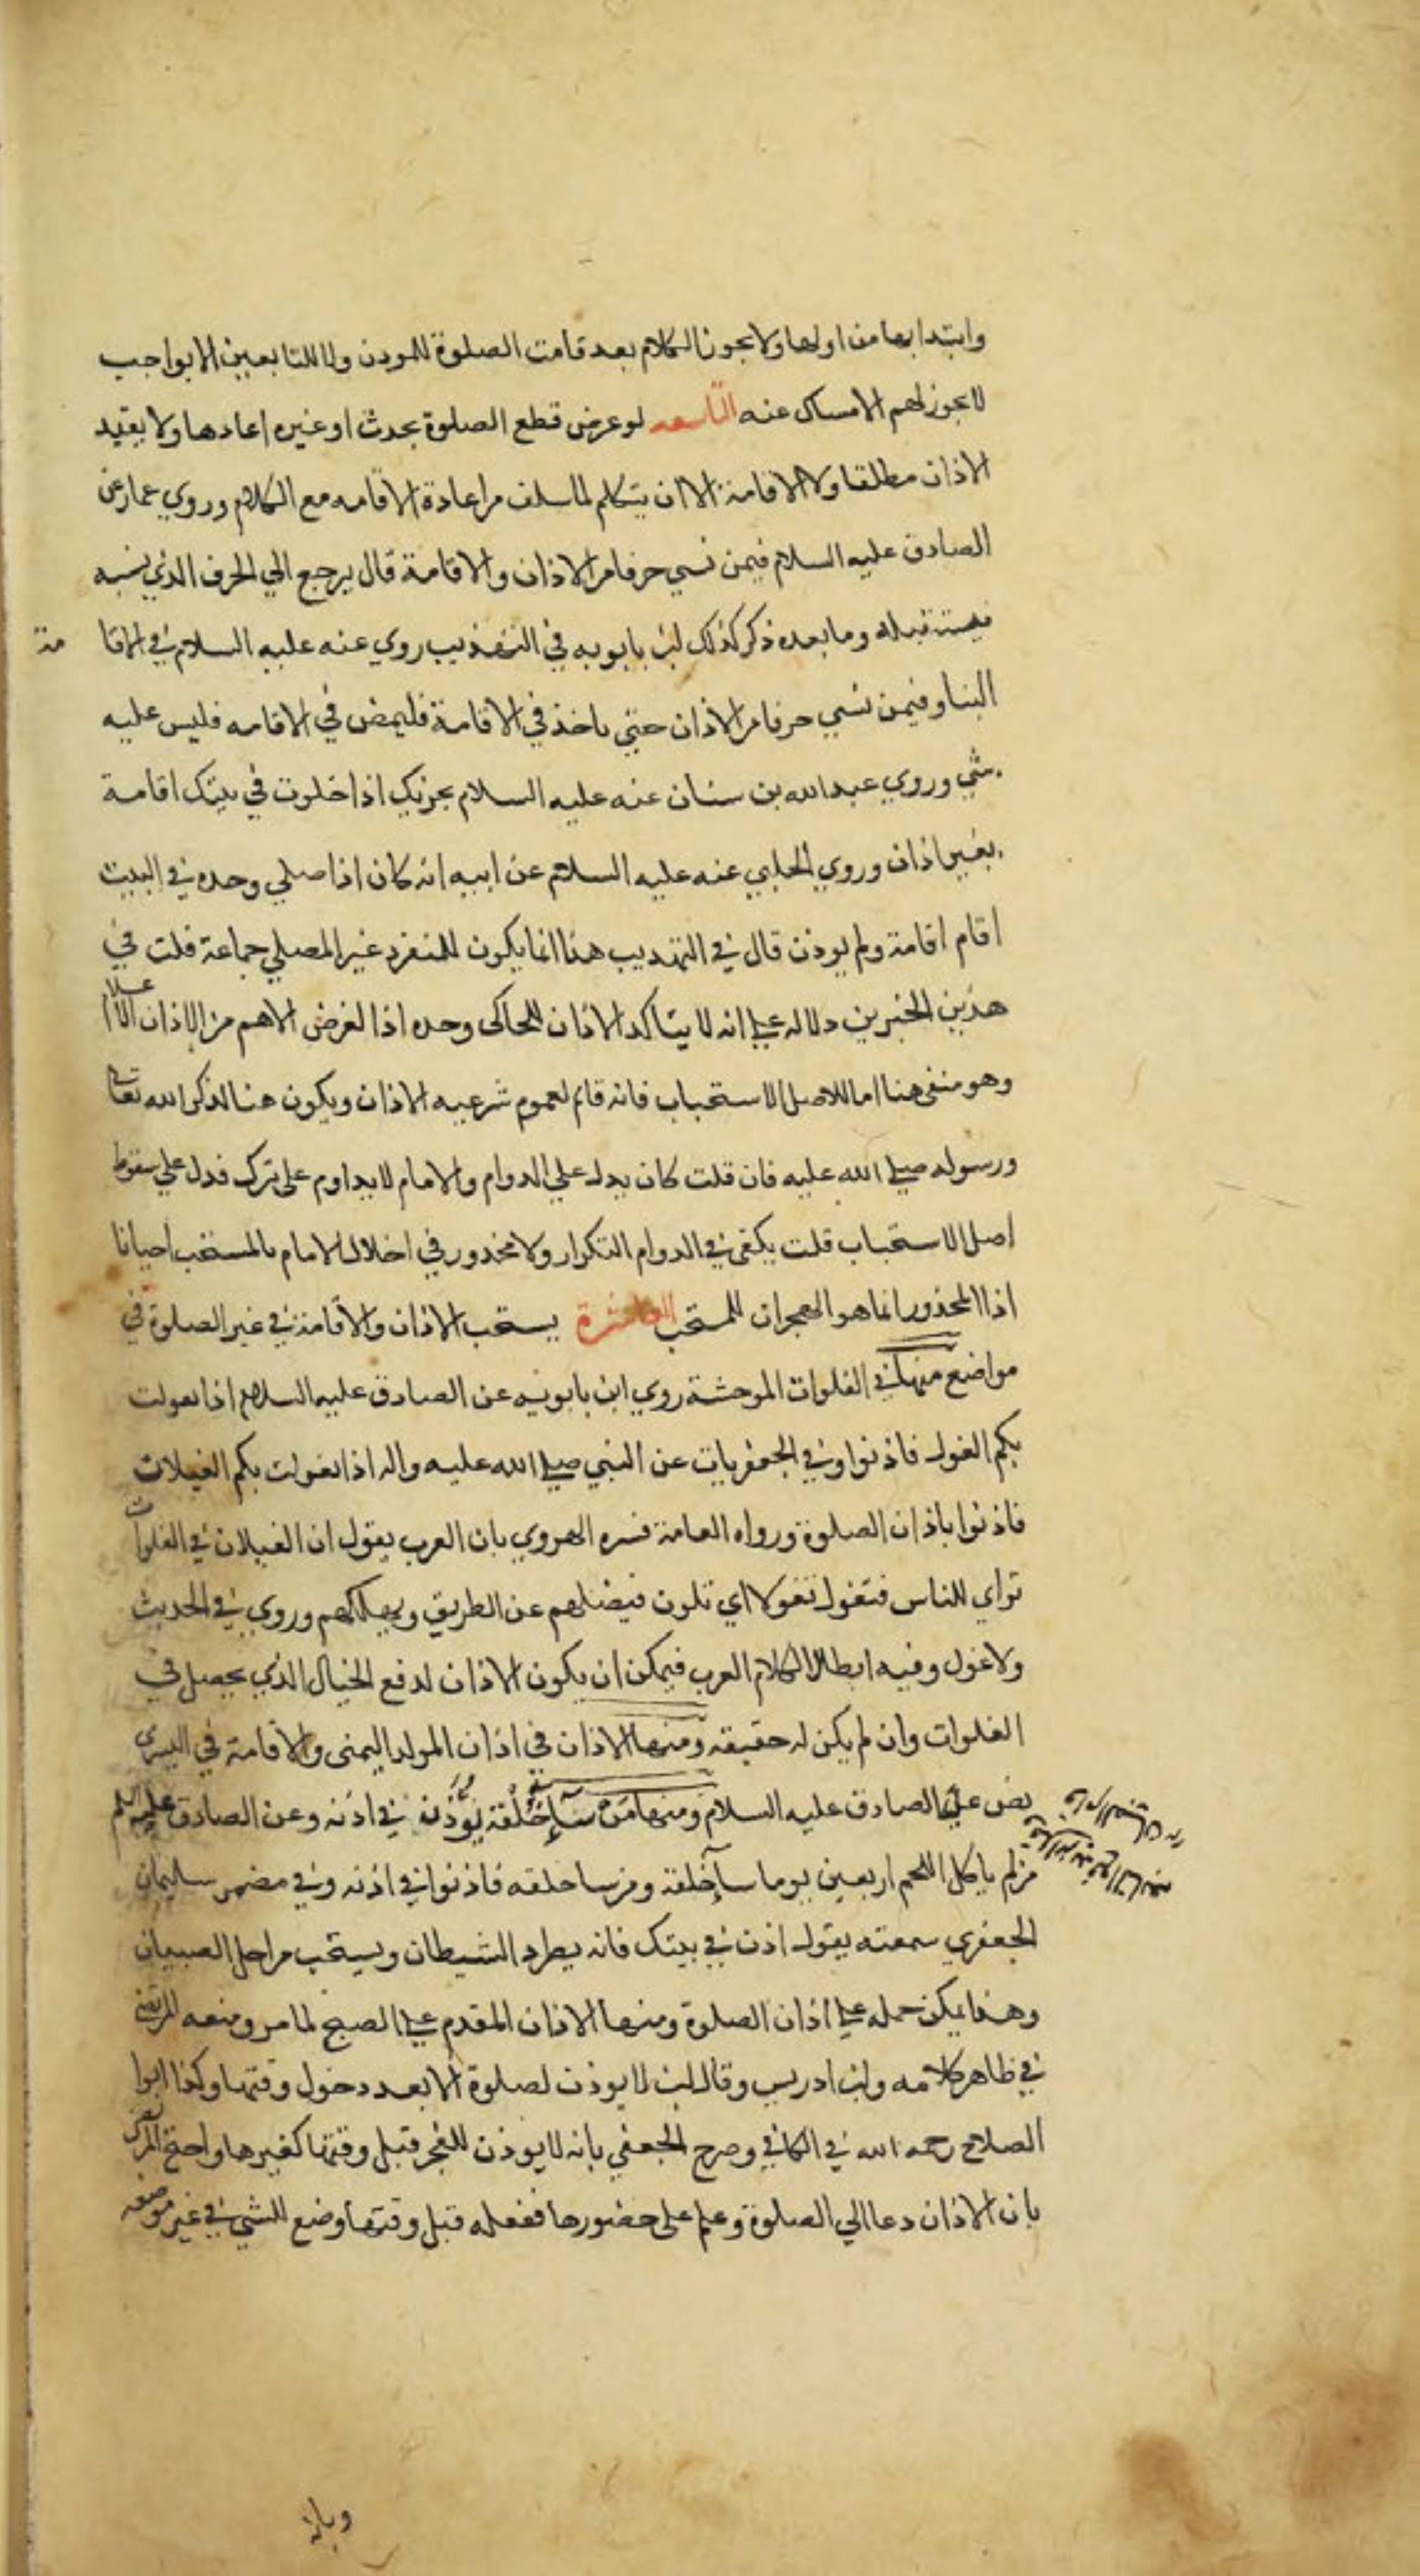 وابتدا بها من اولها ولا يجوز الكلام بعد قامت الصلوة للموذن ولا للتابعين الا بواجب
لا يجوز لهم الامساك عنه التاسعه لو عرض قطع الصلوة بحدث او غيره اعادها ولا يعيد
الاذان مطلقا ولا الاقامة الا ان يتكلم لما سلف من اعادة الاقامه مع الكلام وروي عمار عن
الصادق عليه السلام فيمن نسي حرفا من الاذان والاقامة قال يرجع الي الحرف الذي نسيه
قبله وما بعده ذكر كذلك ابن بابويه في التهذيب روي عنه عليه السلام في الاقا مة
البنا وفيمن نسي حرفا من الاذان حتي ياخذ في الاقامة فليمض في الاقامه فليس عليه
شي وروي عبد الله بن سنان عنه عليه السلام يجزيك اذا خلوت في بيتك اقامة
بغير اذان وروي الحلبي عنه عليه السلام عن ابيه انه كان اذا صلي وحده في البيت
اقام اقامة ولم يوذن قال في التهذيب هذا انما يكون للمنفرد غير المصلي جماعة قلت في
هذين الخبرين دلاله علي انه لا يتاكد الاذان للحاكى وحده اذا لغرض الاهم من الاذان الاعلام
وهو منفى هنا اما اللاصل الاستحباب فانه قائم لعموم شرعيه الاذان ويكون هنا لذكر الله تعالى
ورسوله صلي الله عليه فان قلت كان يدل علي الدوام والامام لا يداوم على ترك فدل علي سقوط
اصل الاستحباب قلت يكفى في الدوام التكرار ولا محذور في اخلال الامام بالمستحب احيانا
اذا المحذور انما هو الهجران للمستحب العاشرة يستحب الاذان والاقامة في غير الصلوة في
مواضع منها في الفلوات الموحشة روي ابن بابويه عن الصادق عليه السلام اذا تغولت
بكم الغول فاذنوا وفي الجعفريات عن النبي صلي الله عليه واله اذا تغولت بكم الغيلان
فاذنوا باذان الصلوة ورواه العامة فسره الهروي بان العرب يقول ان الغيلان في الفلوات
تراي للناس فتغول تغولا اي تلون فيضلهم عن الطريق ويهلكهم وروي في الحديث
ولا غول وفيه ابطال الكلام العرب فيمكن ان يكون الاذان لدفع الخيال الذي يحصل في
الفلوات وان لم يكن له حقيقة ومنها الاذان في اذان المولد اليمنى والاقامة في اليسرى
نص عليه الصادق عليه السلام ومنها من سآ خلقه يوذن في اذنه وعن الصادق عليه السلم
من لم ياكل اللحم اربعين يوما سآ خلقه ومن سا خلقه فاذنوا في اذنه وفي مضمر سليمان
الجعفري سمعته يقول اذن في بيتك فانه يطرد الشيطان ويستحب من اجل الصبيان
وهذا يمكن حمله علي اذان الصلوة ومنها الاذان المقدم علي الصبح لما مر ومنعه المرتضى
في ظاهر كلامه وابن ادريس وقال ابن لا يوذن لصلوة الا بعد دخول وقتها وكذا ابوا
الصلاح رحمه الله في الكافي وصرح الجعفي بانه لا يوذن للفجر قبل وقتها كغيرها واحتج المرتضى
بان الاذان دعا الي الصلوة وعلم على حضورها ففعله قبل وقتها وضع للشي في غير موضعه